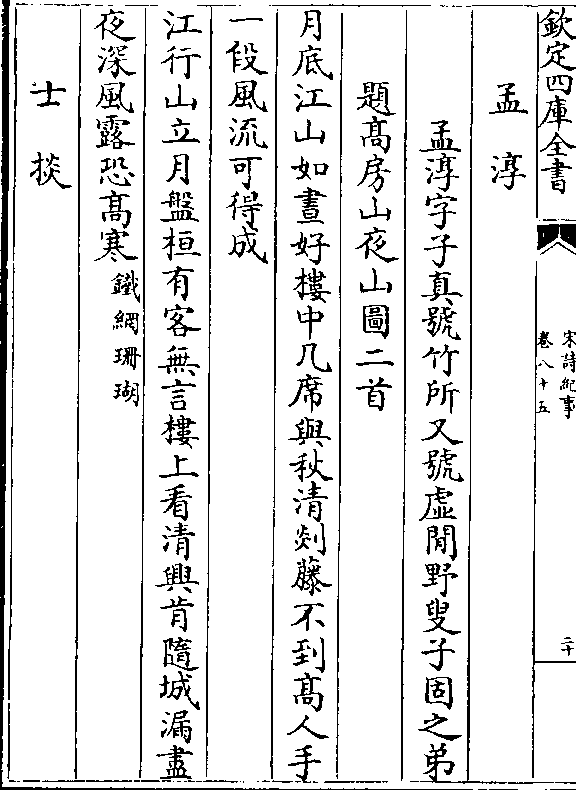 欽定四庫全書
宋詩紀事
卷八十五
二十
孟淳
孟淳字子真號竹所又號虛閒野叟子固之弟
題髙房山夜山圖二首
月底江山如晝好樓中几席與秋清剡藤不到髙人手
一段風流可得成
江行山立月盤桓有客無言樓上看清興肯隨城漏盡
夜深風露恐髙寒鐵網珊瑚
士掞